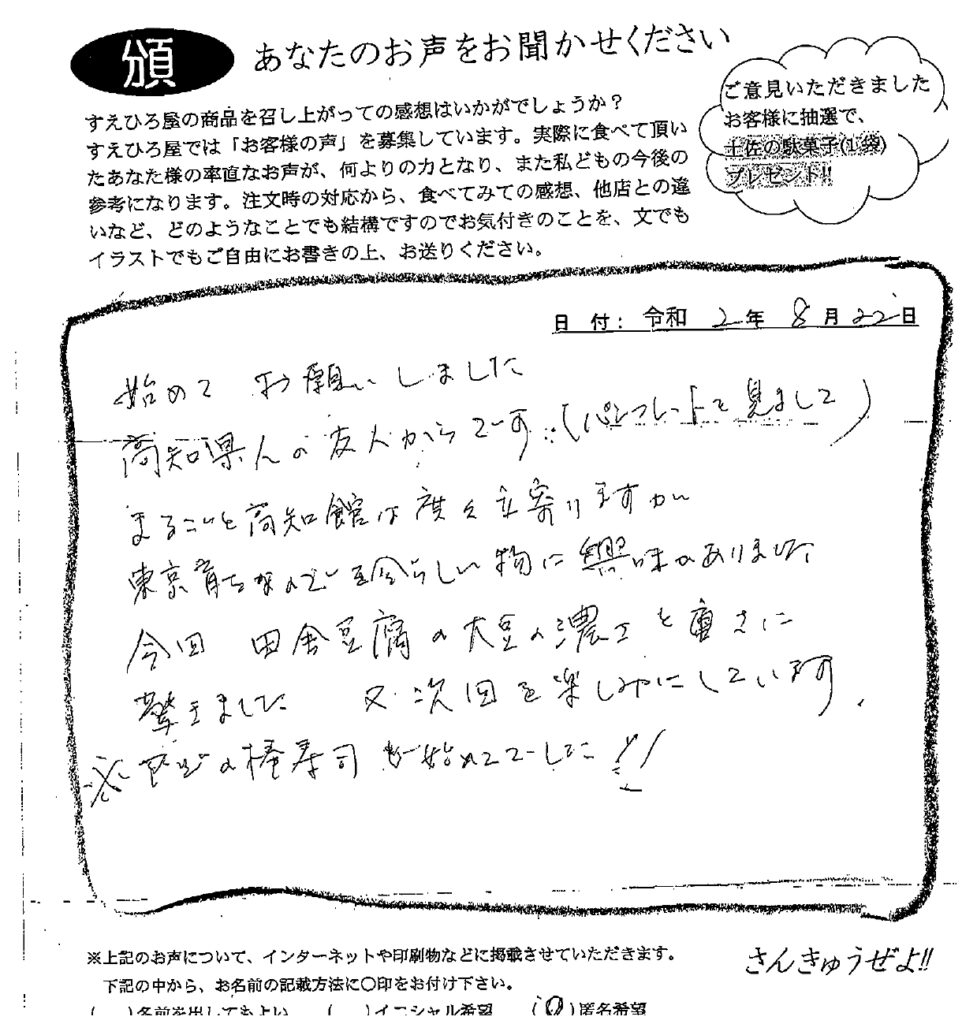 頒 あなたのお声をお聞かせください
ご意見いただきました
お客様に抽選で、
土佐の駄菓子(1袋)
プレゼント!!
すえひろ屋の商品を召し上がっての感想はいかがでしょうか？
すえひろ屋では「お客様の声」を募集しています。実際に食べて頂い
たあなた様の率直なお声が、何よりの力となり、また私どもの今後の
参考になります。注文時の対応から、食べてみての感想、他店との違
いなど、どのようなことでも結構ですのでお気付きのことを、文でも
イラストでもご自由にお書きの上、お送りください。
日 付：令和 2年 8月22日
始めて お願いしました
高知県人の友人からです…(パンフレットを見まして)
まるごと高知館は度々立寄りますが
東京育ちなので珍らしい物に興味がありました
今回 田舎豆腐の大豆の濃さと重さに
驚きました 又次回を楽しみにしています。
の棒寿司が始めてでした!!
※上記のお声について、インターネットや印刷物などに掲載させていただきます。
下記の中から、お名前の記載方法に〇印をお付け下さい。
さんきゅうぜよ!!
( )名前を出してもよい ( )イニシャル希望 (〇)匿名希望